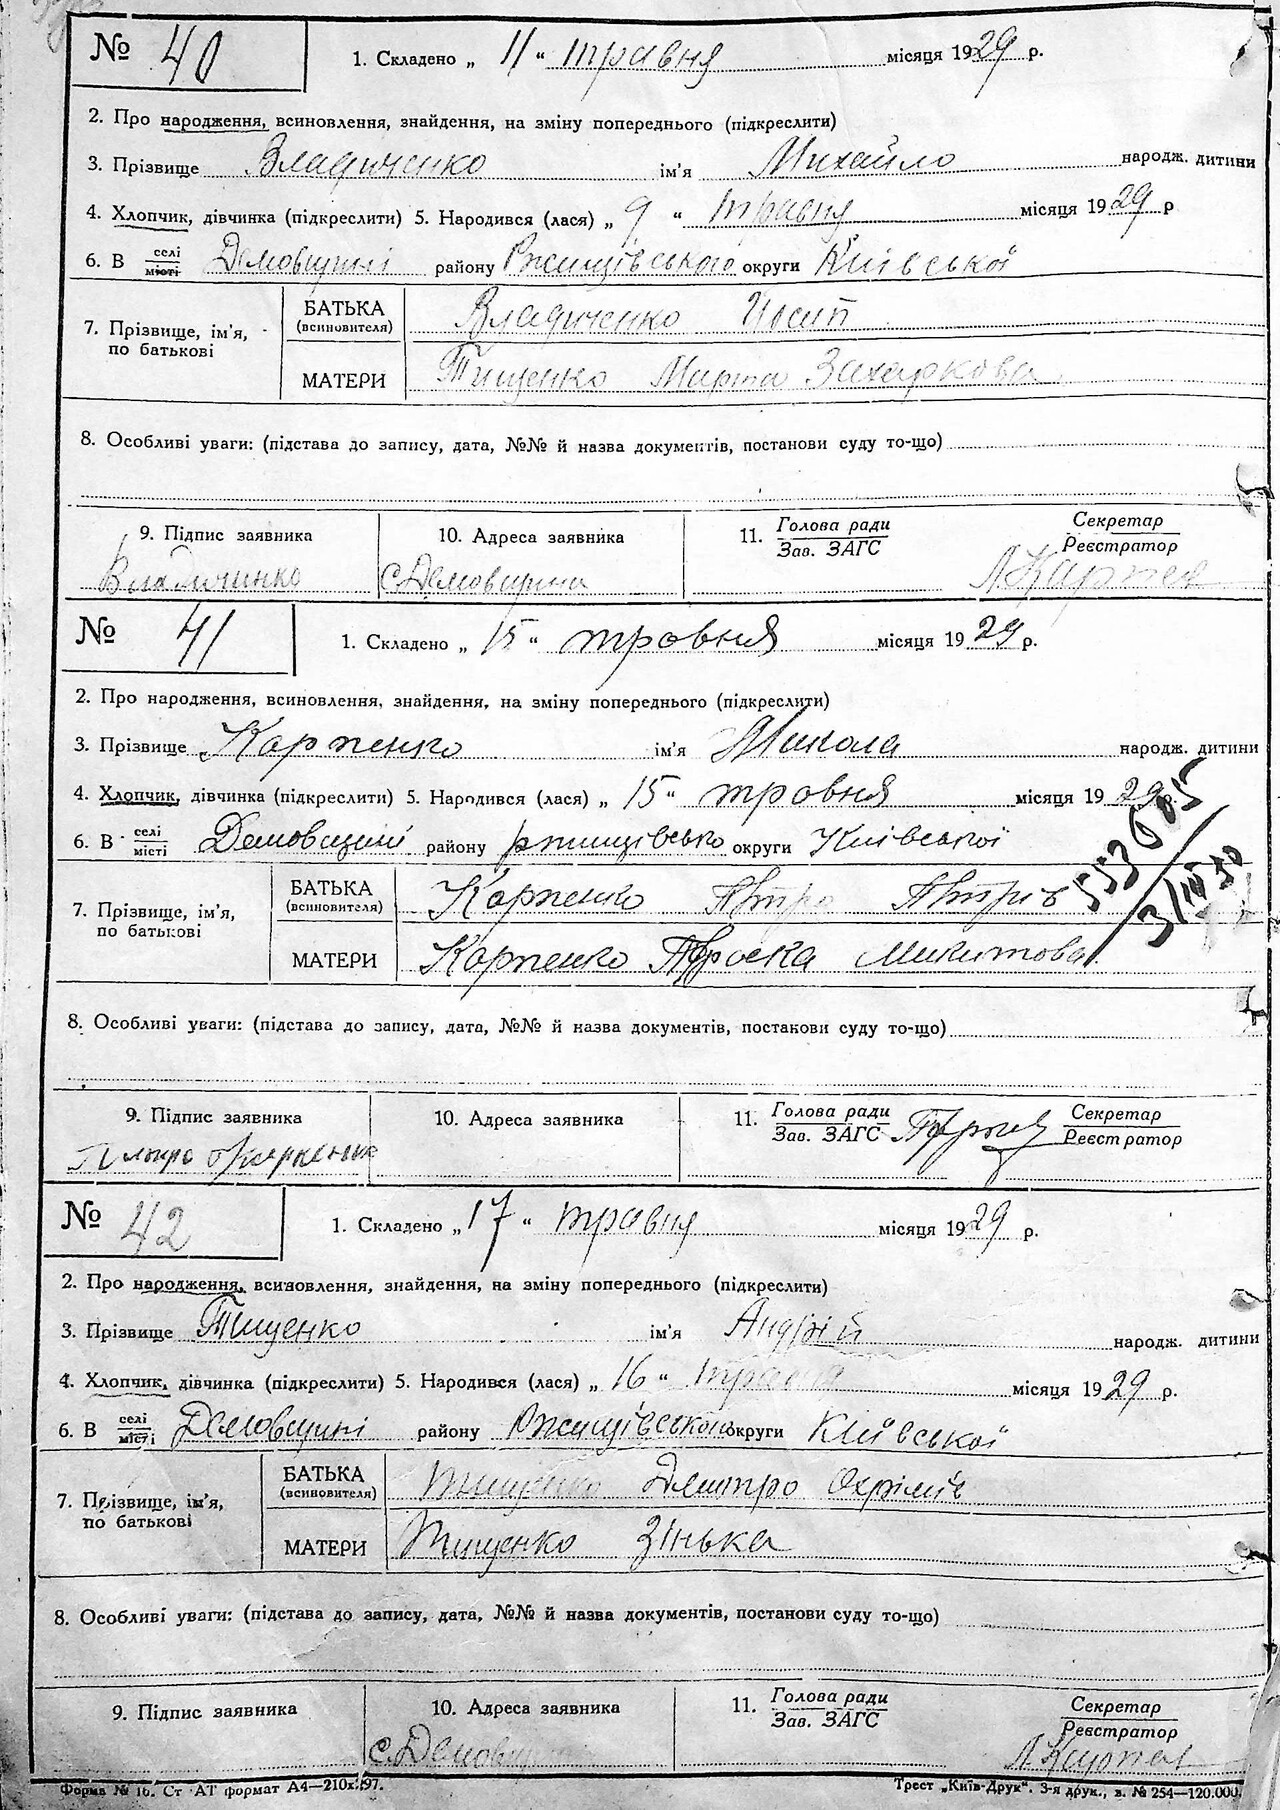 № 40 1. Складено „ 11 “ травня місяця 1929 р.
2. Про народження, всиновлення, знайдення, на зміну попереднього (підкреслити)
3. Прізвище Владиченко ім'я Михайло народж. дитини
4. Хлопчик, дівчинка (підкреслити) 5. Народився (лася) „ 9 “ травня місяця 1929 р
6. В селі місті Демовщині району Ржищівського округи Київської
7. Прізвище, ім'я, по батькові
БАТЬКА (всиновителя) Владиченко Йосип
МАТЕРИ Тищенко Марта Захаркова
8. Особливі уваги: (підстава до запису, дата, №№ й назва документів, постанови суду то-що)
9. Підпис заявника 10. Адреса заявника 11. Голова ради Зав. ЗАГС Секретар Реєстратор
Владиченко с. Демовщина
№ 41 1. Складено „ 15 “ тровня місяця 1929 р.
2. Про народження, всиновлення, знайдення, на зміну попереднього (підкреслити)
3. Прізвище Карпенко ім'я Микола народж. дитини
4. Хлопчик, дівчинка (підкреслити) 5. Народився (лася) „ 15 “ тровня місяця 1929 р.
6. В селі місті Демовщині району ржищівсько округи Київської
553605
3/III 50
7. Прізвище, ім'я, по батькові
БАТЬКА (всиновителя) Карпенко Петро Петрів
МАТЕРИ Карпенко Микитова
8. Особливі уваги: (підстава до запису, дата, №№ й назва документів, постанови суду то-що)
9. Підпис заявника 10. Адреса заявника 11. Голова ради Зав. ЗАГС Секретар Реєстратор
№ 42 1. Складено „ 17 “ травня місяця 1929 р.
2. Про народження, всиновлення, знайдення, на зміну попереднього (підкреслити)
3. Прізвище Тищенко ім'я Андрій народж. дитини
4. Хлопчик, дівчинка (підкреслити) 5. Народився (лася) „ 16 “ травня місяця 1929 р.
6. В селі місті Демовщині району Ржищівського округи Київської
7. Прізвище, ім'я, по батькові
БАТЬКА (всиновителя) Тищенко Дмитро Охрімів
МАТЕРИ Тищенко Зінька
8. Особливі уваги: (підстава до запису, дата, №№ й назва документів, постанови суду то-що)
9. Підпис заявника 10. Адреса заявника 11. Голова ради Зав. ЗАГС Секретар Реєстратор
с. Демовщ
Форма № 16. Ст АТ формат А4—210х297. Трест „Київ-Друк“. 3-я друк., з. № 254—120.000.